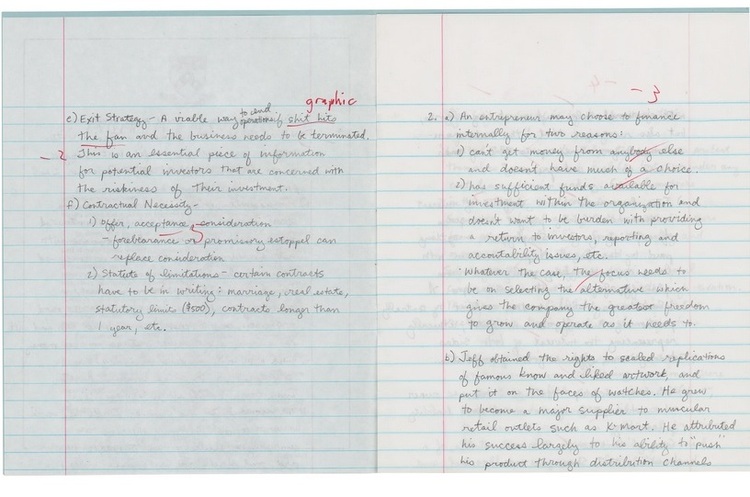 graphic
e) Exit Strategy - A viable way to end operations if shit hits
the fan and the business needs to be terminated.
- 2 This is an essential piece of information
for potential investors that are concerned with
the riskiness of their investment.
f) Contractual Necessity -
1) offer, acceptance, consideration
- forebearance or promissory estoppel can
replace consideration
2) Statets of limitations - certain contracts
have to be in writing: marriage, real estate,
statutory limits ($500), contracts longer than
1 year, etc.
- 3
2. a) An entrepreneur may choose to finance
internally for two reasons:
1) can't get money from anybody else
and doesn't have much of a choice.
2) has sufficient funds available for
investment within the organization and
doesn't want to be burden with providing
a return to investors, reporting and
accountability issues, etc.
· Whatever the case, the focus needs to
be on selecting the alternative which
gives the company the greatest freedom
to grow and operate as it needs to.
b) Jeff obtained the rights to scaled replications
of famous know and liked artwork, and
put it on the faces of watches. He grew
to become a major supplier to
retail outlets such as K-mart. He attributed
his success largely to his ability to "push"
his product through distribution channels